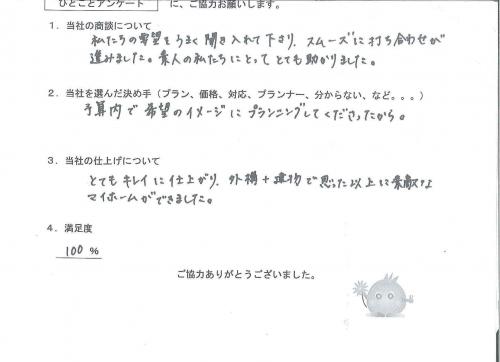 ひとことアンケート に、ご協力お願いします。
1．当社の商談について
私たちの要望をうまく聞き入れて下さり、スムーズに打ち合わせが
進みました。素人の私たちにとってとても助かりました。
2．当社を選んだ決め手（プラン、価格、対応、プランナー、分からない、など。。。）
予算内で希望のイメージにプランニングしてくださったから。
3．当社の仕上げについて
とてもキレイに仕上がり、外構＋建物で思った以上に素敵な
マイホームができました。
4．満足度
100％
ご協力ありがとうございました。